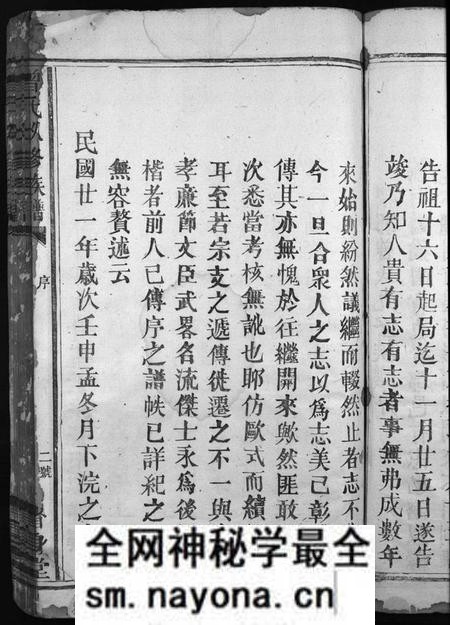 告祖十六日起局迄十一月廿五日遂告
竣乃知人貴有志有志者事無弗成數年
來始則紛然議繼而輟然止者志不
今一旦合衆人之志以爲志美已彰
傳其亦無愧於往繼開來歟然匪敢
次悉當考核無訛也聊仿歐式而續
耳至若宗支之遞傳徙遷之不一與
孝廉節文臣武畧名流傑士永爲後
楷者前人已傳序之譜帙已詳紀之
無容贅述云
民國廿一年歲次壬申孟冬月下浣之
氏
修族譜
序
二號
堂
全网神秘学最全
sm.nayona.cn